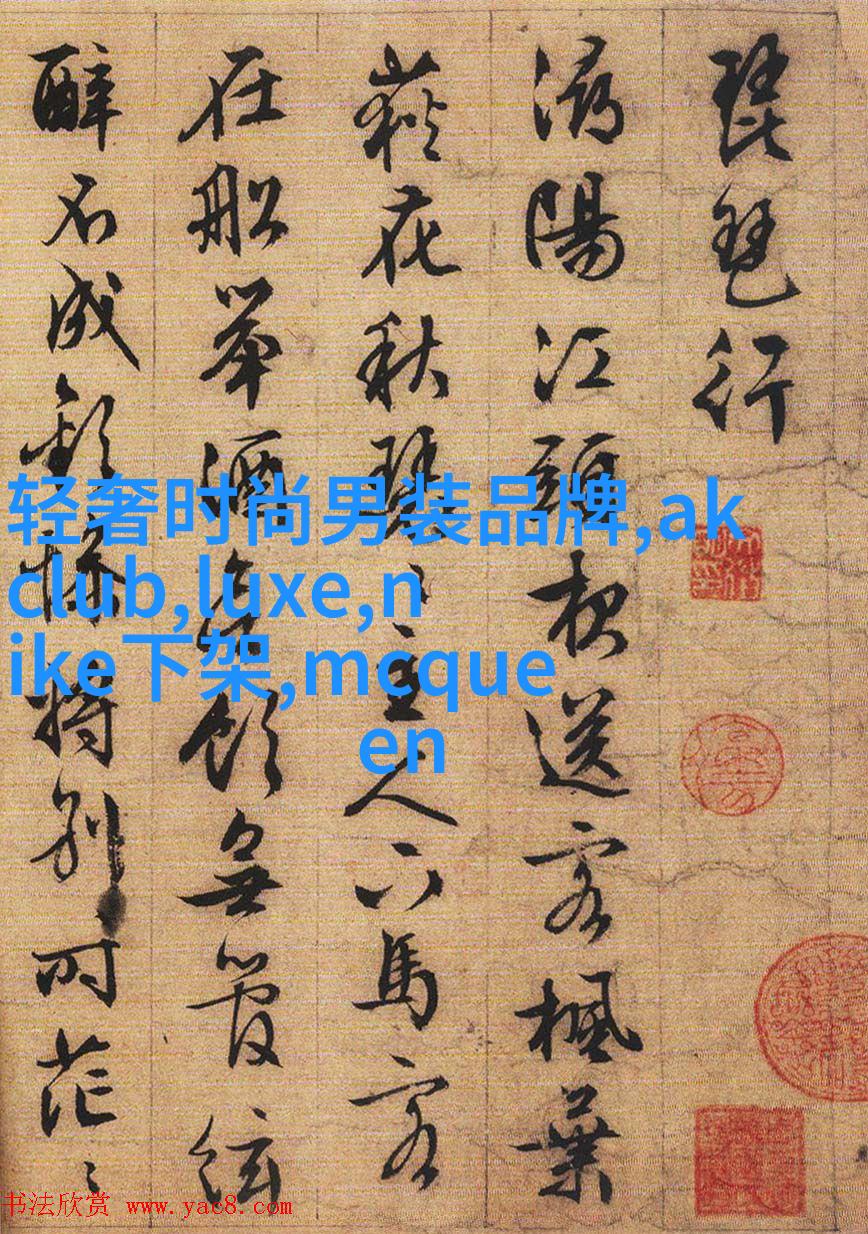 琵琶行
潯陽江頭夜送客楓葉
荻花秋瑟〻主人下馬客
在船舉酒欲飲無管絃
醉不成歡惨將別〻時茫〻
轻奢时尚男装品牌,ak
club,luxe,n
ike下架,mcque
en
书法欣赏 www.yac8.com